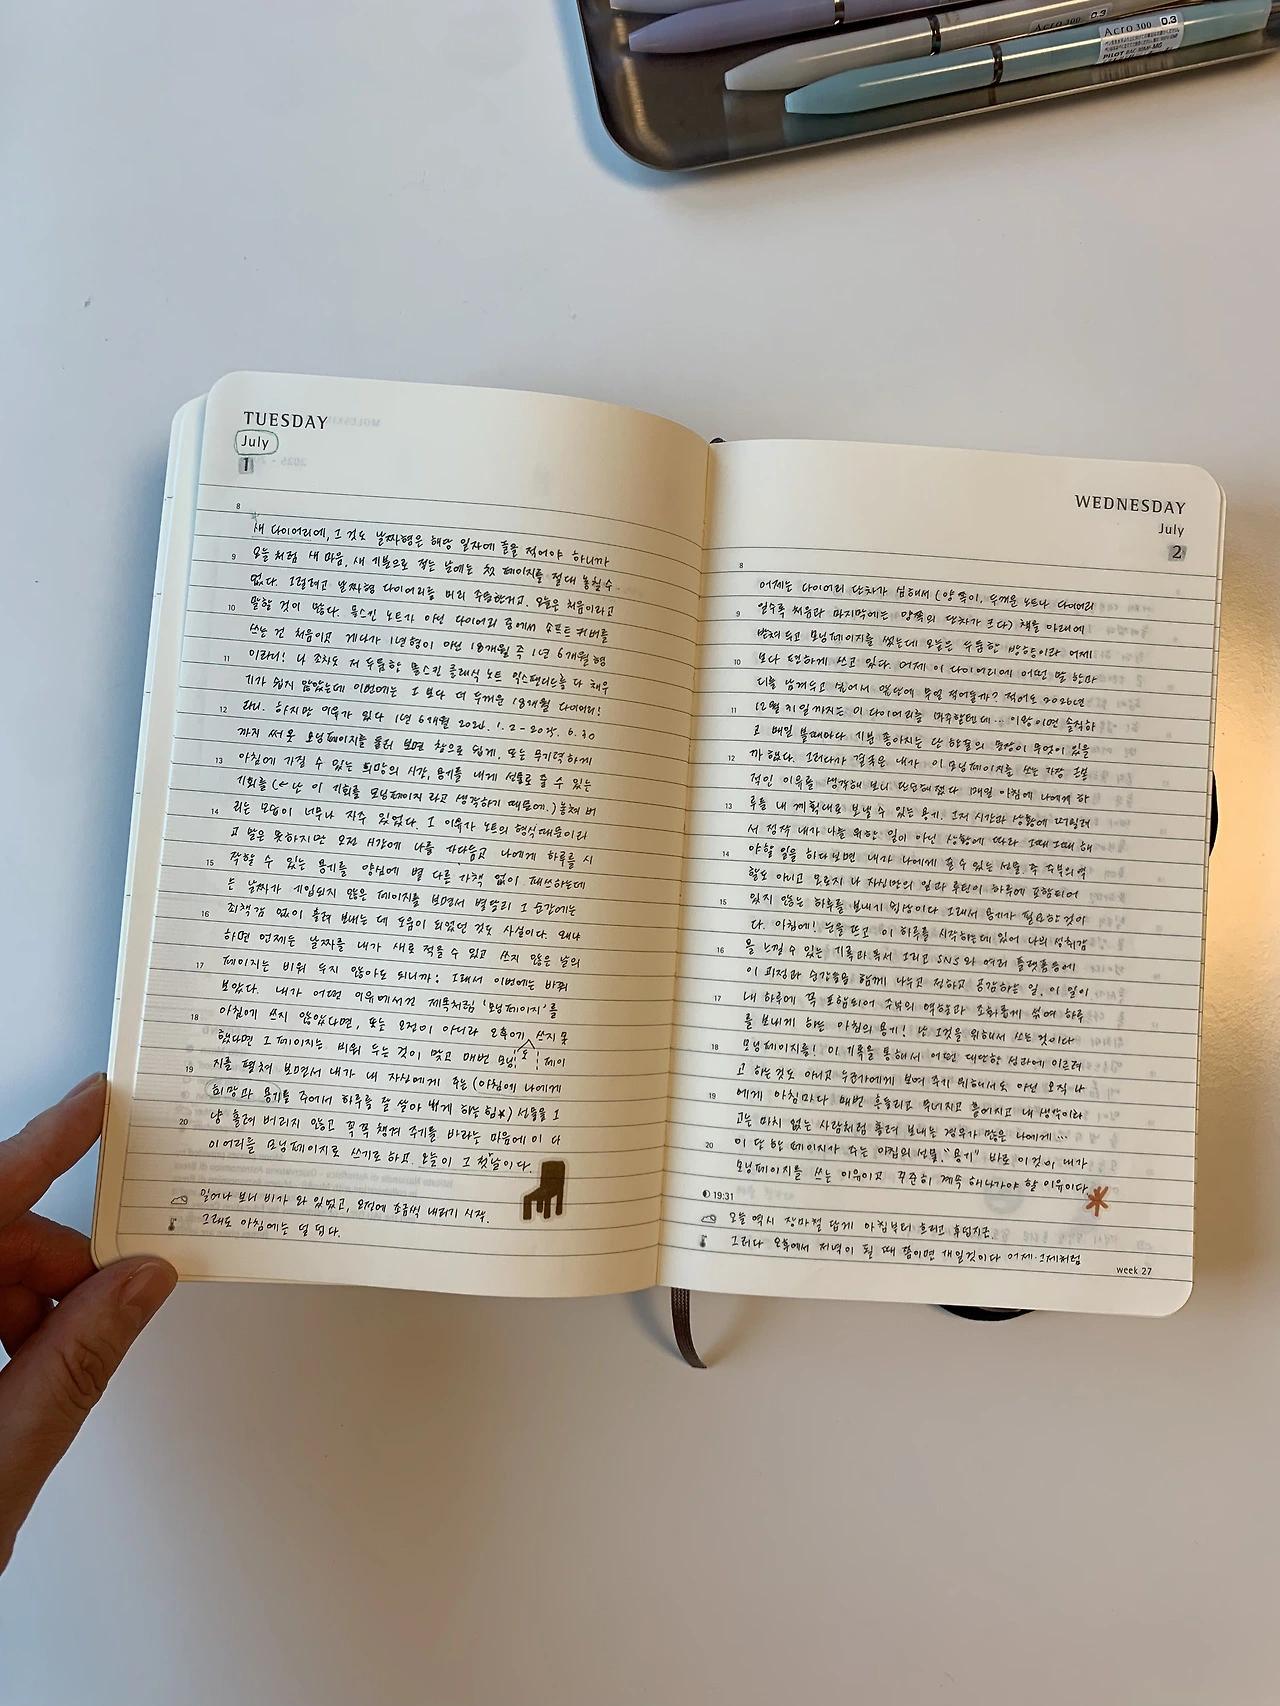 Acro 300 0.3
Acro 300 0.3
PILOT
TUESDAY
July
1
8
새 다이어리에, 그것도 날짜형은 해당 일자에 글을 적어야 하니까
9 오늘처럼 새 마음, 새 기분으로 적는 날에는 첫 페이지를 절대 놓칠 수
없다. 그럴려고 날짜형 다이어리를 미리 주문한거고. 오늘은 처음이라고
10 말할 것이 많다. 몰스킨 노트가 아닌 다이어리 중에서 소프트 커버를
쓰는 건 처음이고 게다가 1년형이 아닌 18개월 즉 1년 6개월형
11 이라니! 나 조차도 저 두툼한 몰스킨 클래식 노트 익스팬디드를 다 채우
기가 쉽지 않았는데 이번에는 그 보다 더 두꺼운 18개월 다이어리!
12 라니. 하지만 이유가 있다 1년 6개월 2024. 1. 2 - 2025. 6. 30
까지 써 온 모닝페이지를 돌려 보면 참으로 쉽게, 또는 무기력하게
13 아침에 가질 수 있는 희망의 시간, 용기를 내게 선물로 줄 수 있는
기회를 (← 난 이 기회를 모닝페이지 라고 생각하기 때문에.) 놓쳐 버
14 리는 모습이 너무나 자주 있었다. 그 이유가 노트의 형식때문이라
고 말은 못하지만 오전 시간에 나를 가다듬고 나에게 하루를 시
15 작할 수 있는 용기를 양심에 별 다른 가책 없이 패쓰하는데
는 날짜가 기입되지 않은 페이지를 보면서 별말리 그 순간에는
16 죄책감 없이 흘려 보내는 데 도움이 되었던 것도 사실이다. 왜냐
하면 언제든 날짜를 내가 새로 적을 수 있고 쓰지 않은 날의
17 페이지는 비워 두지 않아도 되니까; 그래서 이번에는 바꿔
보았다. 내가 어떤 이유에서건 제목처럼 '모닝페이지'를
18 아침에 쓰지 않았다면, 또는 오전이 아니라 오후에도 쓰지 못
했다면 그 페이지는 비워 두는 것이 맞고 매번 모닝 페이
19 지를 펼쳐 보면서 내가 내 자신에게 주는 (아침에 나에게
희망과 용기를 주어서 하루를 잘 살아 내게 하는 힘*) 선물을 그
20 냥 흘려 버리지 않고 꼭꼭 챙겨 주기를 바라는 마음에 이 다
이어리를 모닝페이지로 쓰기로 하고. 오늘이 그 첫날이다.
일어나 보니 비가 와 있었고, 오전에 조금씩 내리기 시작.
그래도 아침에는 덜 덥다.
WEDNESDAY
July
2
8
어제는 다이어리 단차가 심해서 (양 쪽이. 두꺼운 노트나 다이어리
9 일수록 처음과 마지막에는 양쪽의 단차가 크다) 책을 아래에
받쳐 두고 모닝페이지를 썼는데 오늘은 두툼한 방향이라 어제
10 보다 편하게 쓰고 있다. 어제 이 다이어리에 어떤 말 한마
디를 남겨두고 싶어서 맨앞에 무얼 적어둘까? 적어도 2026년
11 12월 31일 까지는 이 다이어리를 마주할텐데... 이왕이면 솔직하
고 매일 볼때마다. 기분 좋아지는 단 한줄의 문장이 무엇이 있을
12 까 했다. 그러다가 결국은 내가 이 모닝페이지를 쓰는 가장 근본
적인 이유를 생각해 보니 또렷해졌다 매일 아침에 나에게 하
13 루를 내 계획대로 보낼 수 있는 용기. 그저 시간과 상황에 떠밀려
서 정작 내가 나를 위한 일이 아닌 상황에 따라 그때그때 해
14 야할 일을 하다보면 내가 나에게 줄 수 있는 선물 즉 주부의 역
할도 아니고 오로지 나 자신만의 일과 루틴이 하루에 포함되어
15 있지 않는 하루를 보내기 십상이다 그래서 용기가 필요한 것이
다. 아침에! 눈을 뜨고 이 하루를 시작하는데 있어 나의 성취감
16 을 느낄 수 있는 기록과 독서 그리고 SNS와 여러 플랫폼등에
이 과정과 순간들을 함께 나누고 전하고 공감하는 일. 이 일이
17 내 하루에 꼭 포함되어 주부의 역할과 조화롭게 섞여 하루
를 보내게 하는 아침의 용기! 난 그것을 위해서 쓰는 것이다
18 모닝페이지를! 이 기록을 통해서 어떤 대단한 성과에 이르려
고 하는것도 아니고 누군가에게 보여 주기 위해서도 아닌 오직 나
19 에게 아침마다 매번 흔들리고 무너지고 흩어지고 내 생각이라
고는 마치 없는 사람처럼 흘려 보내는 경우가 많은 나에게...
20 이 단 한 페이지가 주는 아침의 선물. "용기" 바로 이것이 내가
모닝페이지를 쓰는 이유이고 꾸준히 계속 해나가야 할 이유이다
19:31
오늘 역시 장마철 답게 아침부터 흐리고 후덥지근
그러다 오후에서 저녁이 될 때 땀이면 개일것이다 어제·그제처럼
week 27